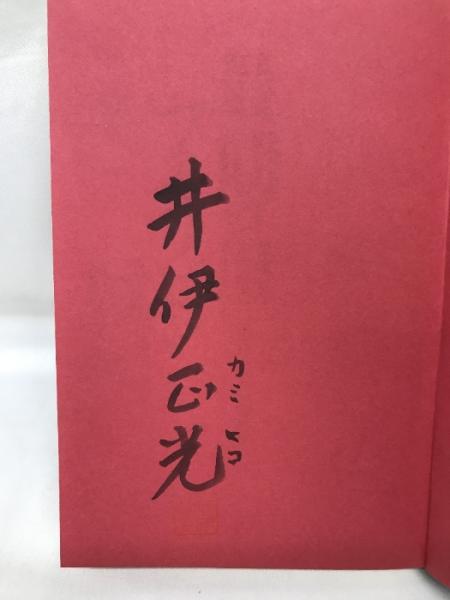 井伊正光
カミヒコ